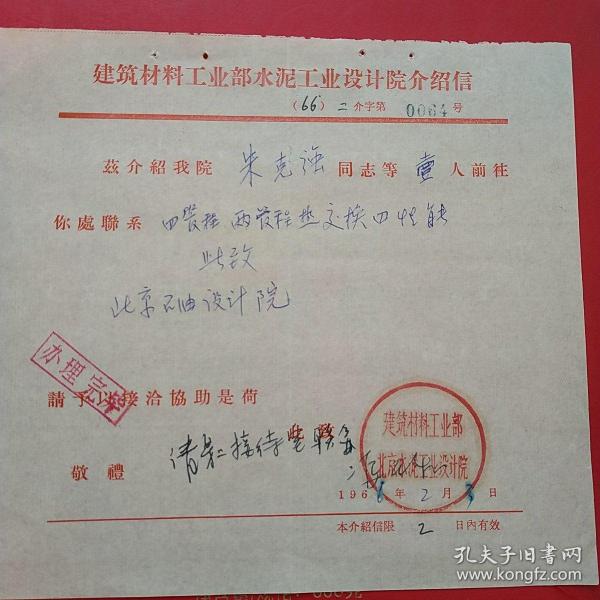 建筑材料工业部水泥工业设计院介绍信
(66) 二 介字第 0064 号
茲介紹我院 朱克强 同志等 壹 人前往
你處聯系 四管程 两管程热交换 性能
此致
北京石油设计院
办理完毕
請予以接洽協助是荷
建筑材料工业部
北京水泥工业设计院
敬禮
请 接待
1966 年 2 月 3 日
本介紹信限 2 日內有效
孔夫子旧书网
www.kongfz.com